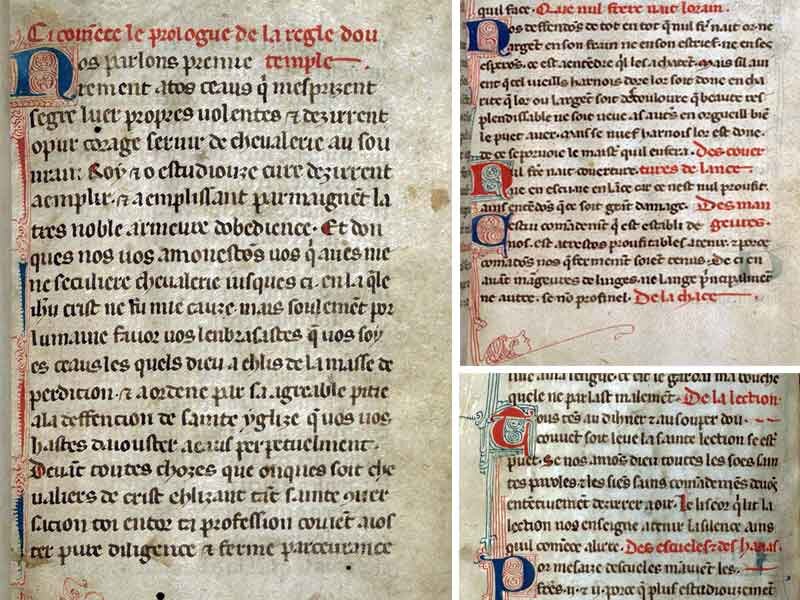 Ci comēce le prologue de la regle dou
Nos parlons premie temple
rement a tos ceaus q̄ mesprizent
segre luer propres volentes & dezirrent
o pur corage servir de chevalerie au sou
urain Roy & o estudiouze cure dezirrent
aemplir & aemplissant parmaignēt la
tres noble armeure dobedience. Et don
ques nos vos amonestōs vos q̄ aues me
ne seculiere chevalerie iusques ci en la q̄le
ihū crist ne fu mie cauze mais soulemēt por
lumaine favor vos lenbrasastes q̄ vos soy
es ceaus les quels dieu a eslis de la masse de
perdicion & a ordene par sa agreable pitie
a la deffencion de sainte yglize q̄ vos vos
hastes daiouster a eaus perpetuelment.
Devāt toutes chozes que onques soit che
valiers de crist eslizant tāt sainte cover
sacion toi entor ta profession coviēt aios
ter pure diligence & ferme parceurance
qui l face. Que nul frere nait lorain.
Nos deffendōs de tot en tot q̄ nul fr̄ nait or ne
argēt en son frain ne en son estrief ne en ses
esperōs. ce est a entēdre q̄l les achatēt mais sil avi
ent q̄ cel vieills harnois dore lor soit done en cha
rite q̄ lor ou largēt soit descouloure q̄ beaute res
plendissable ne soit veue as autres en orgueill bien
le puet avoir mais se nuef harnois lor est done
de ce se porvoie le maistre quil en fera. Des cover
Nul fr̄e nait coverture tures de lance
que en escu ne en lāce car ce nest nul proufit.
ains entēdōs que soit grāt damage. Des man
Cestui comādemēt qui est establi de geures.
nos. est a trestos proufitables a tenir & por ce
comādōs nos q̄ fermemēt soiēt tenus. De ci en
avāt māgeures de linges ne lange p̄ncipalmēt
ne autre. se nō profinel. De la chace
quele ne parlast malement. De la lection
Tous tēs au disner & au souper dou
couvēt soit leue la sainte lection se est
puet. Se nos amōs dieu toutes les soes sain
tes paroles & les siēs sains comādemēs devōs
ententivemēt dezirrer a oir. Le liseor q̄ lit la
lection nos enseigne a tenir la silence ains
quil comēce a lirre. Des escueles & des hanas.
Por mesaise descueles māuiēt les
freres .ii. & .ii. por ce q̄ plus estudiouzemēt